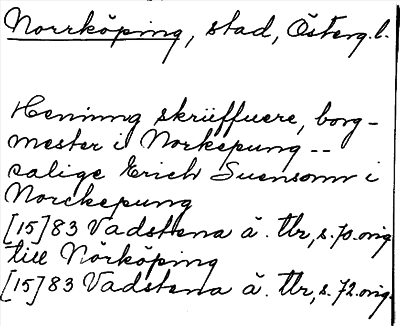 Norrköping, stad, Österg.l.
Heninng skrüffuere, borg-
mester i Norkepung --
salige Erich Suensonn i
Norckepung
[15]83 Vadstena ä. Tb, s. 70. orig.
till Nörköping
[15]83 Vadstena ä. Tb, s. 72. orig.